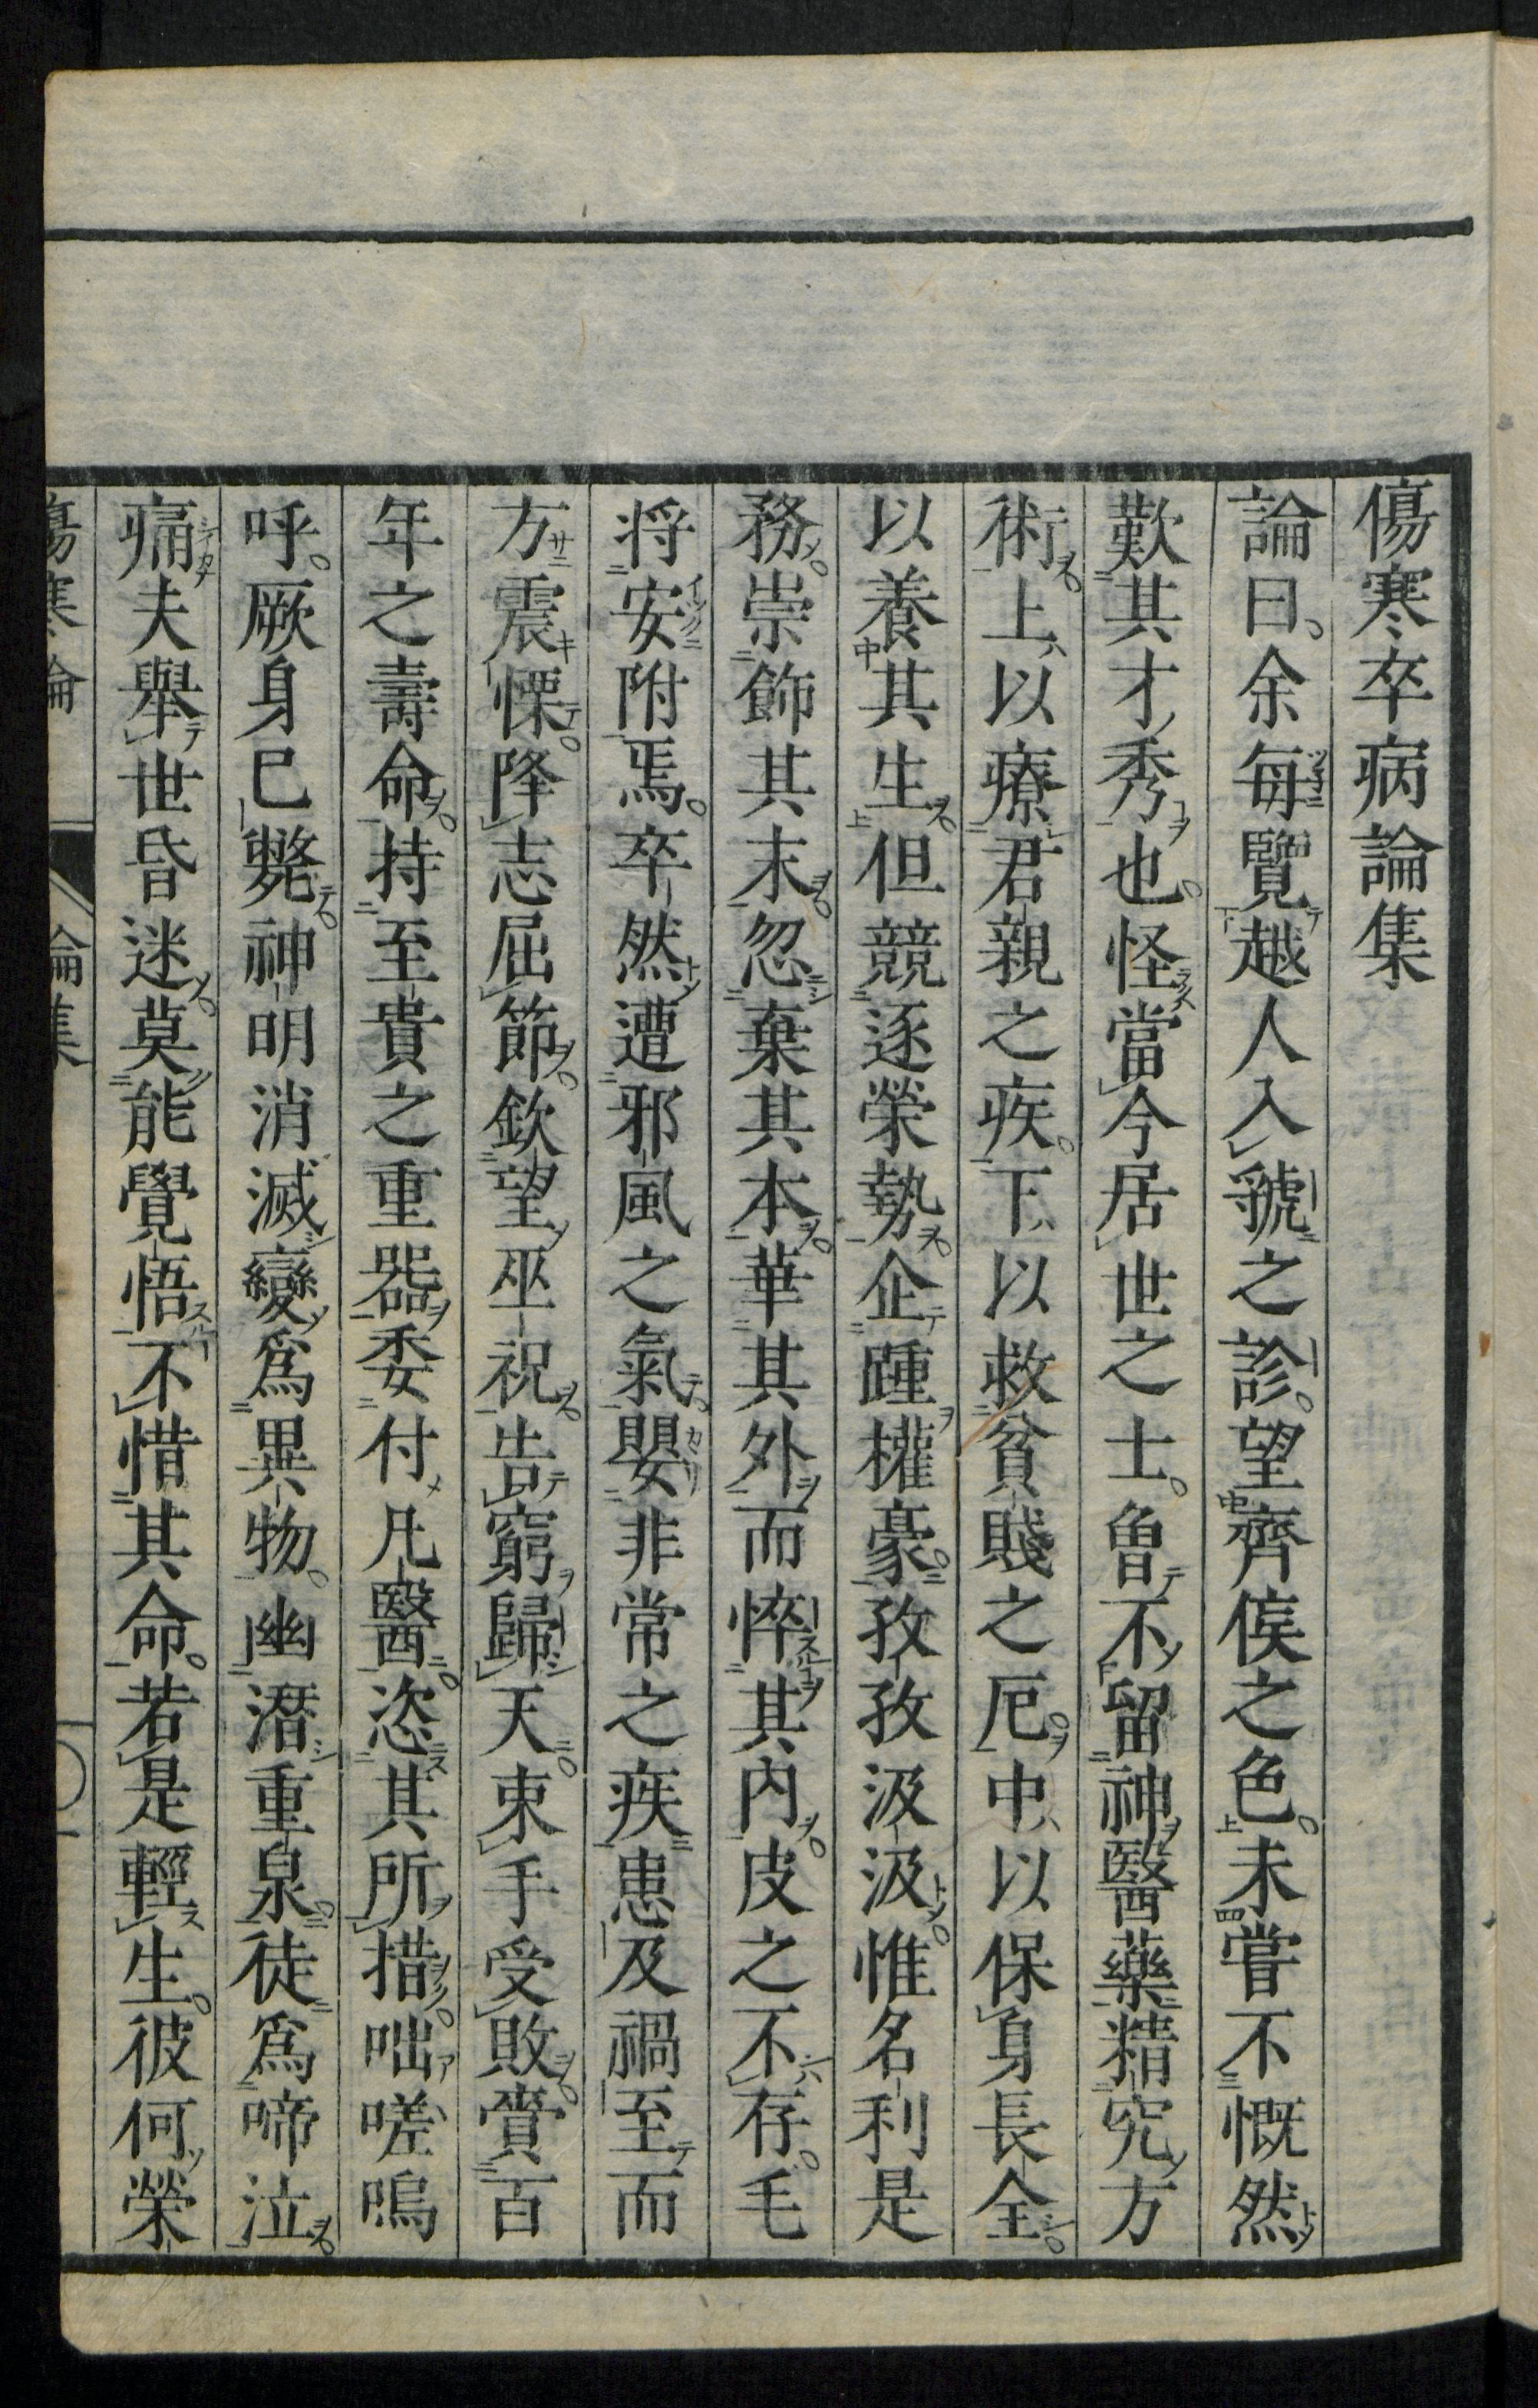 傷寒卒病論集
論曰余每覽越人入虢之診望齊侯之色未嘗不慨然
歎其才秀也怪當今居世之士曾不留神醫藥精究方
術上以療君親之疾下以救貧賤之厄中以保身長全
以養其生但競逐榮勢企踵權豪孜孜汲汲惟名利是
務崇飾其末忽棄其本華其外而悴其內皮之不存毛
将安附焉卒然遭邪風之氣嬰非常之疾患及禍至而
方震慄降志屈節欽望巫祝告窮歸天束手受敗賷百
年之壽命持至貴之重器委付凡醫恣其所措咄嗟嗚
呼厥身已斃神明消滅變爲異物幽潛重泉徒爲啼泣
痛夫舉世昏迷莫能覺悟不惜其命若是輕生彼何榮
傷寒論 論集 一